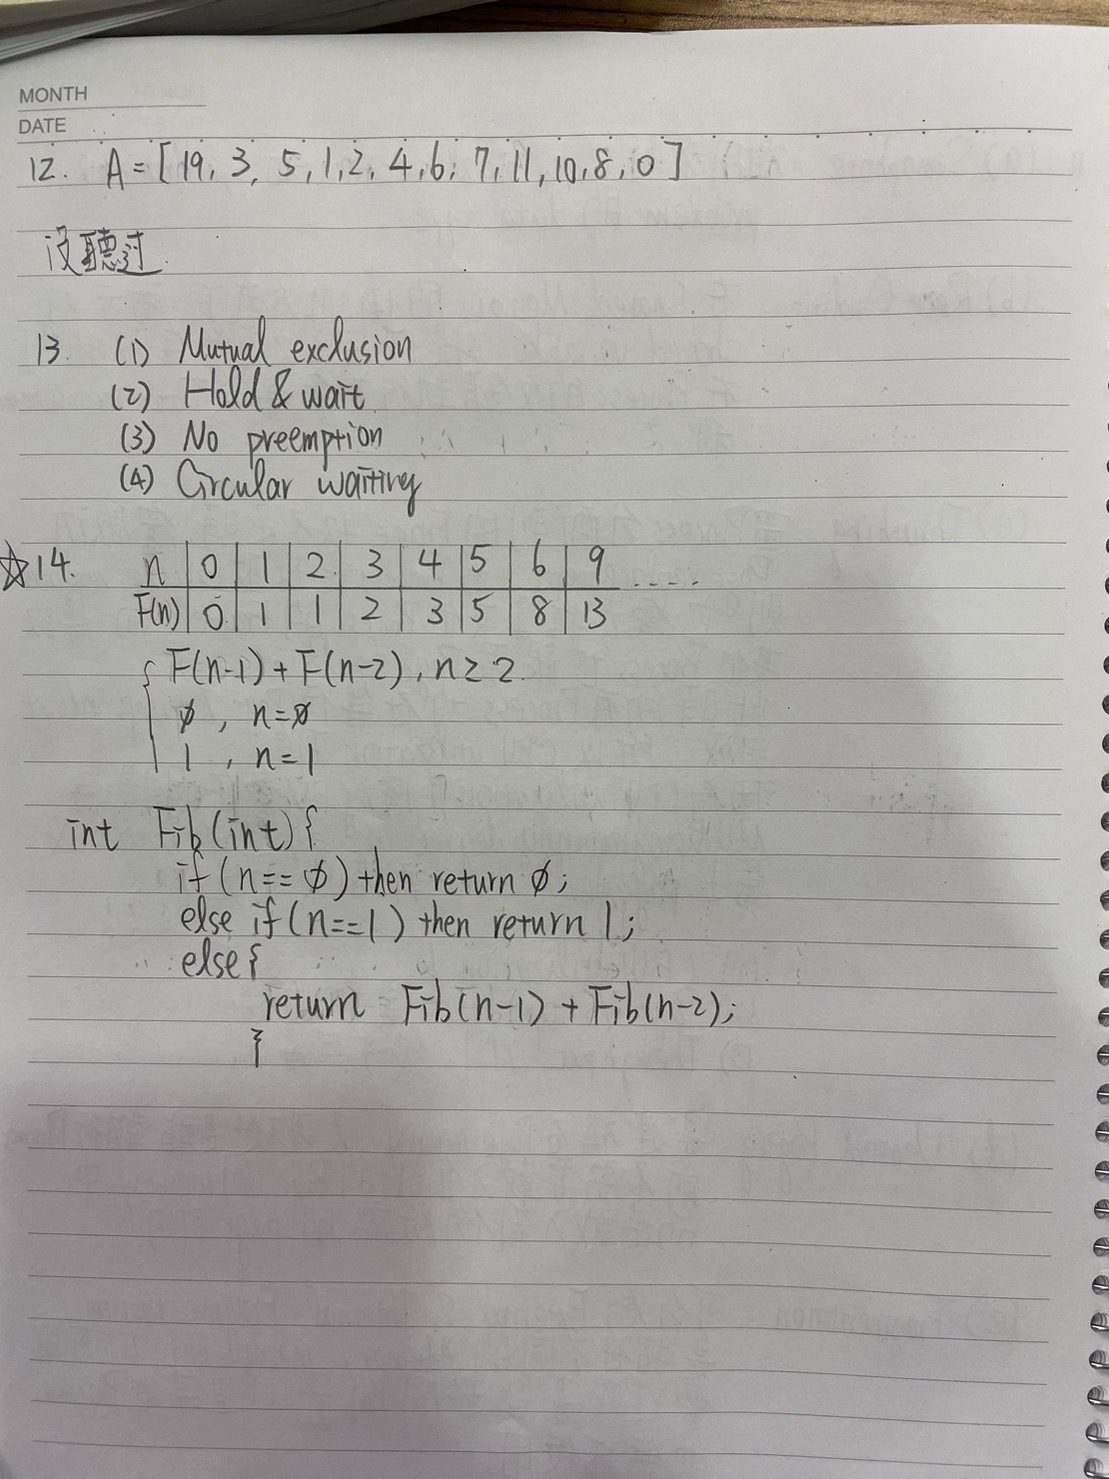 MONTH
DATE
12. A = [19, 3, 5, 1, 2, 4, 6, 7, 11, 10, 8, 0]
沒聽过.
13. (1) Mutual exclusion
(2) Hold & wait
(3) No preemption
(4) Circular waiting
☆14. n | 0 | 1 | 2 | 3 | 4 | 5 | 6 | 9 ....
F(n) | 0 | 1 | 1 | 2 | 3 | 5 | 8 | 13
{ F(n-1) + F(n-2), n ≥ 2
∅, n=∅
1, n=1
int Fib(int){
if (n==∅) then return ∅;
else if (n==1) then return 1;
else{
return Fib(n-1) + Fib(n-2);
}